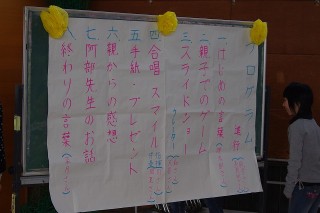 プログラム
進行
一 はじめの言葉
二 親子でのゲーム
三 スライドショー
四 合唱 スマイル
五 手紙・プレゼント
六 親からの感想
七 阿部先生のお話
八 終わりの言葉